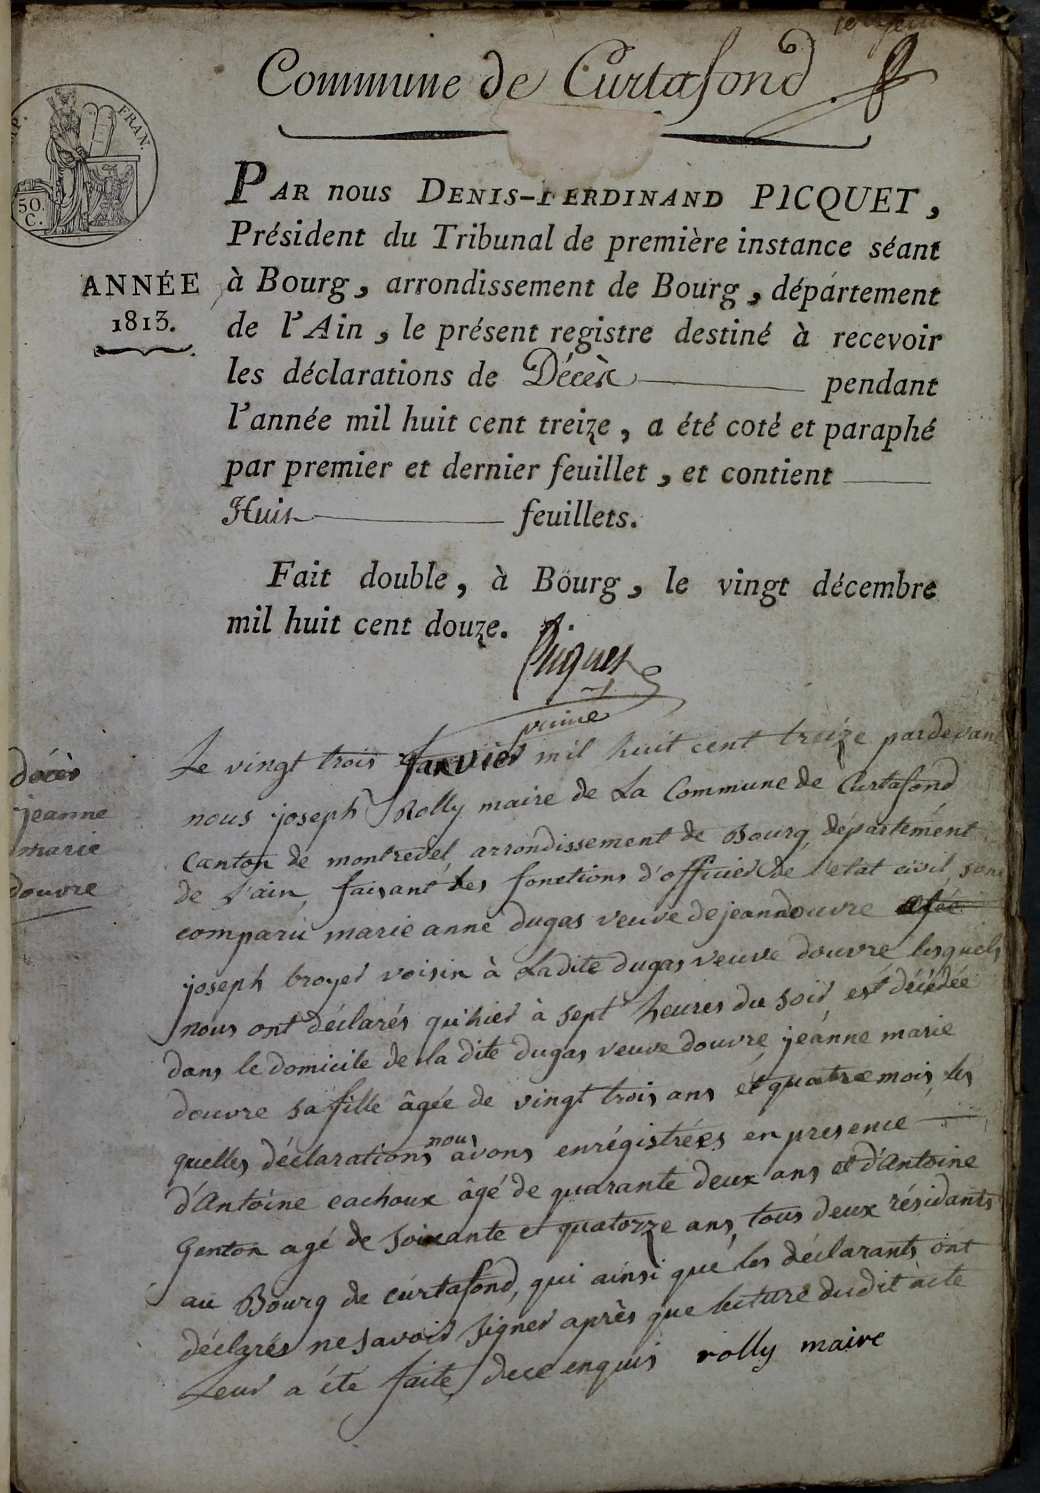 Commune de Curtafond
FRAN.
50.
C.
ANNÉE
1813.
PAR nous DENIS-FERDINAND PICQUET,
Président du Tribunal de première instance séant
à Bourg, arrondissement de Bourg, département
de l'Ain, le présent registre destiné à recevoir
les déclarations de Décès pendant
l'année mil huit cent treize, a été coté et paraphé
par premier et dernier feuillet, et contient
Huit feuillets.
Fait double, à Bourg, le vingt décembre
mil huit cent douze.
Picquet
décès
jeanne
marie
douvre
Le vingt trois janvier mil huit cent treize pardevant
nous joseph Rolly maire de La Commune de Curtafond
Canton de montrevel, arrondissement de Bourg, département
de l'ain, faisant les fonctions d'officier de l'etat civil, sont
comparu marie anne dugas veuve de jean douvre
joseph broyer voisin à Ladite dugas veuve douvre lesquels
nous ont déclarés qu'hier à sept heures du soir est décédée
dans le domicile de la dite dugas veuve douvre, jeanne marie
douvre sa fille âgée de vingt trois ans et quatre mois, les
quelles déclarations nous avons enrégistrées en presence
d'Antoine cachoux âgé de quarante deux ans et d'Antoine
Genton agé de soixante et quatorze ans, tous deux résidants
au Bourg de curtafond, qui ainsi que les déclarants ont
déclarés ne savoir signer après que lecture dudit acte
Leur a été faite, de ce enquis rolly maire